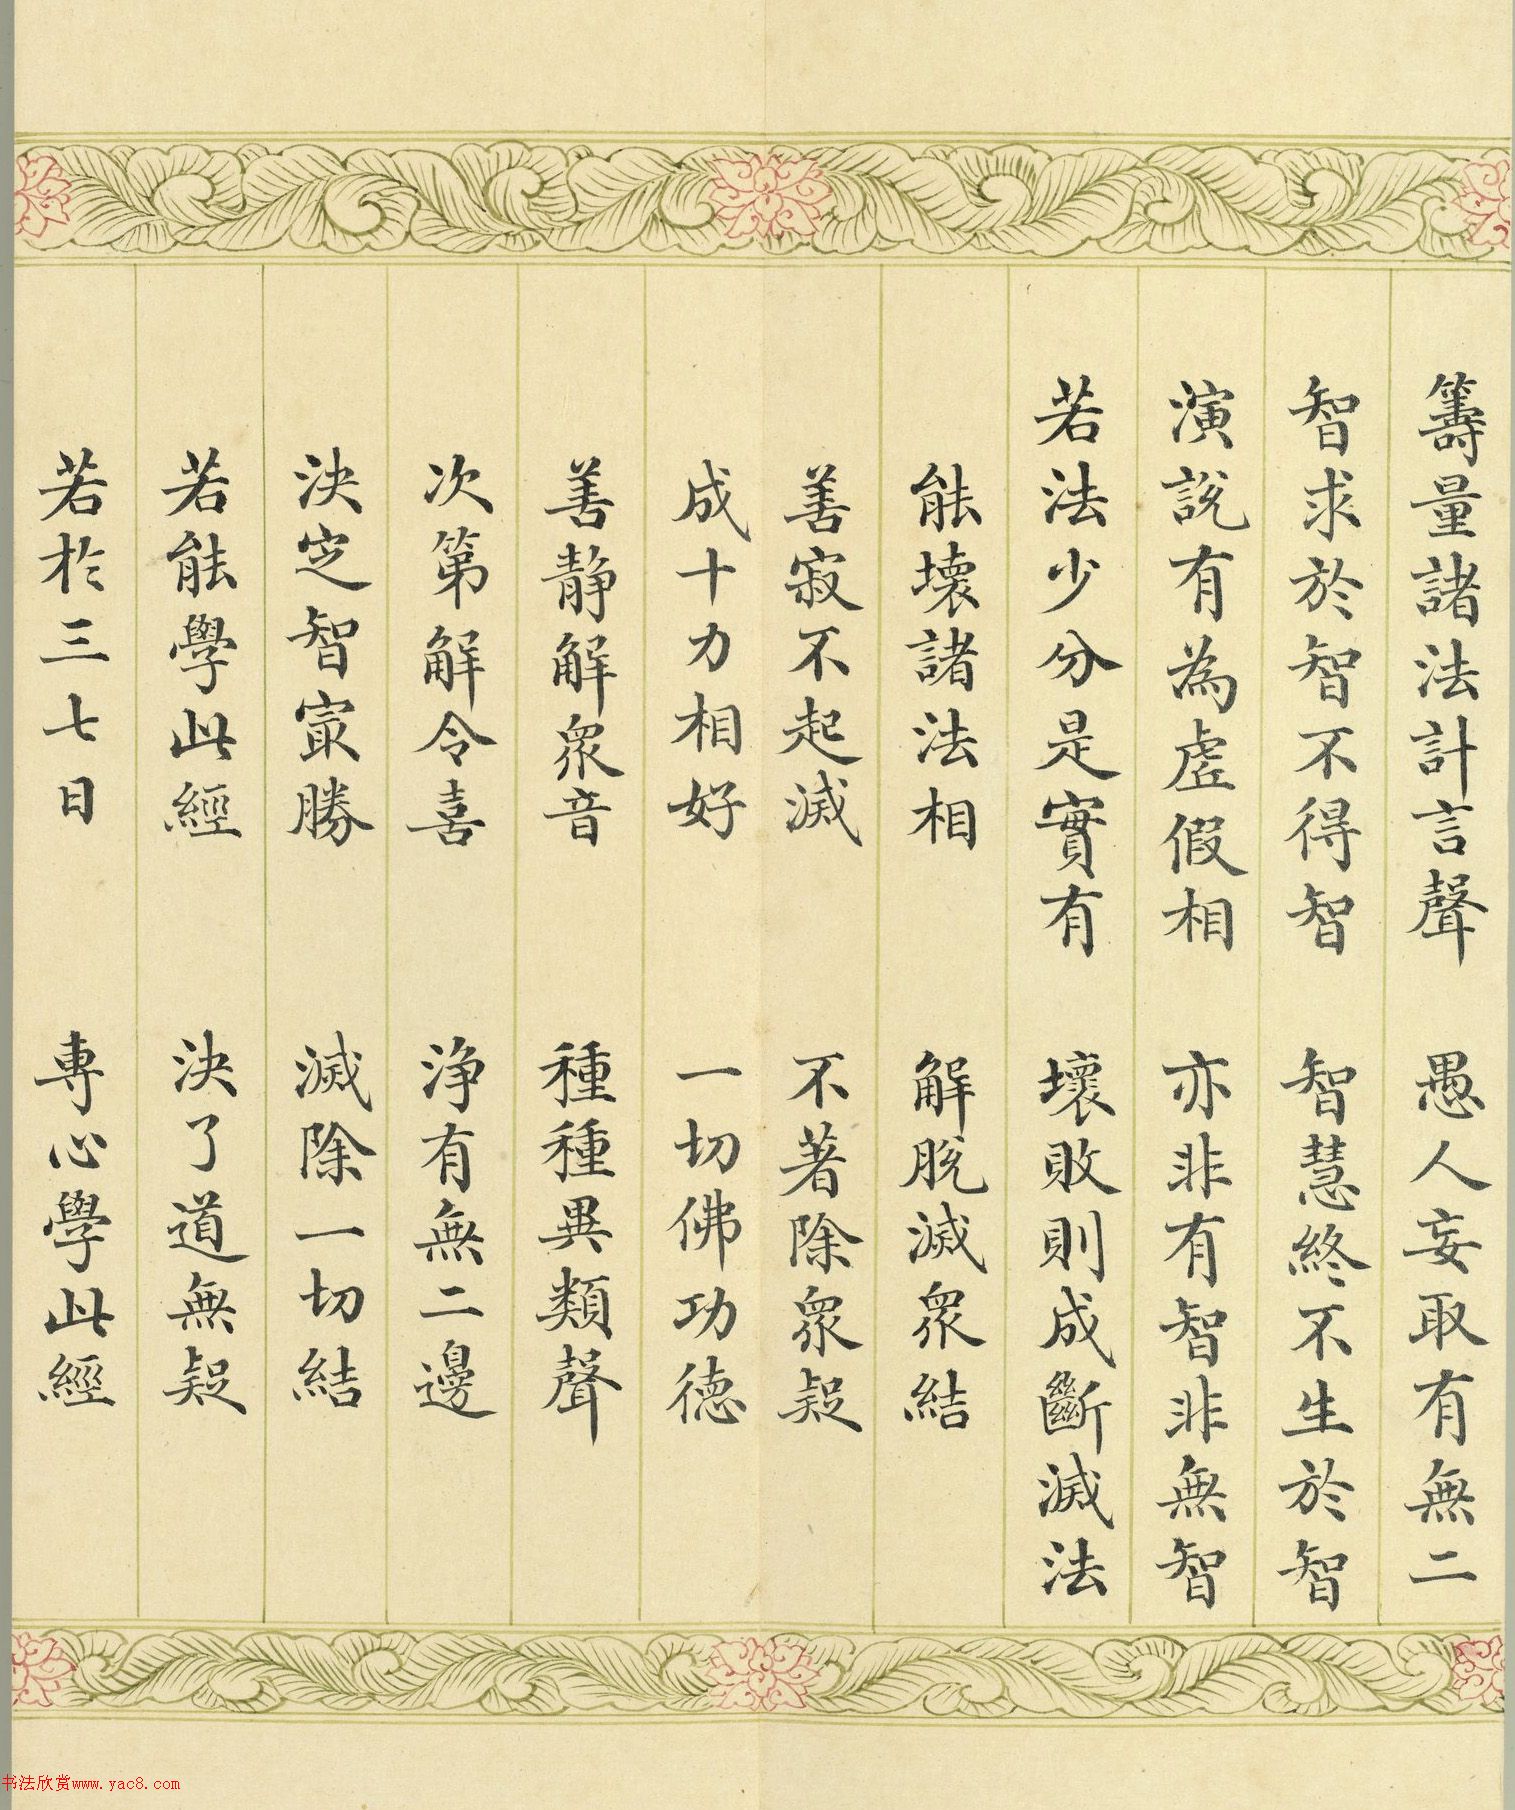 籌量諸法計言聲 愚人妄取有無二
智求於智不得智 智慧終不生於智
演說有為虛假相 亦非有智非無智
若法少分是實有 壞敗則成斷滅法
能壞諸法相 解脫滅眾結
善寂不起滅 不著除眾疑
成十力相好 一切佛功德
善靜解眾音 種種異類聲
次第解令喜 淨有無二邊
決定智寂勝 滅除一切結
若能學此經 決了道無疑
若於三七日 專心學此經
书法欣赏www.yac8.com